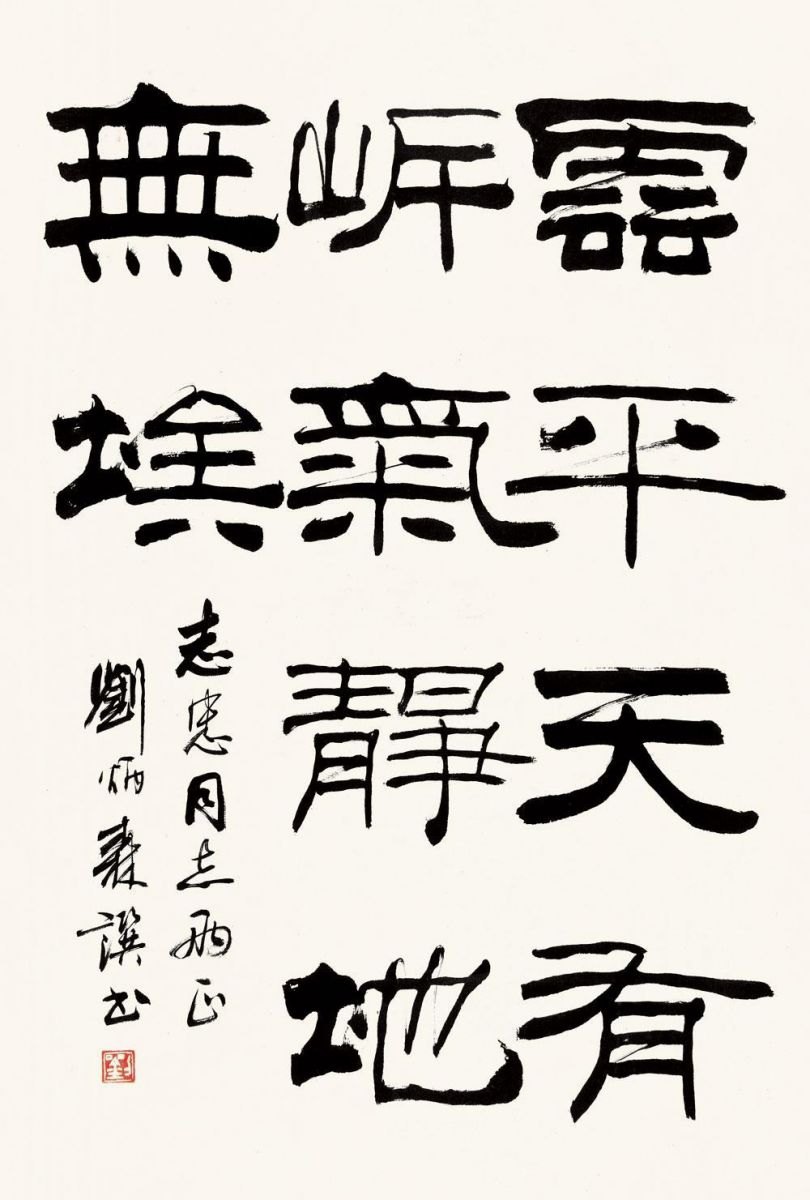 雲平天有
岸氣靜地
無埃
志同志兩正
劉炳森譔書
劉